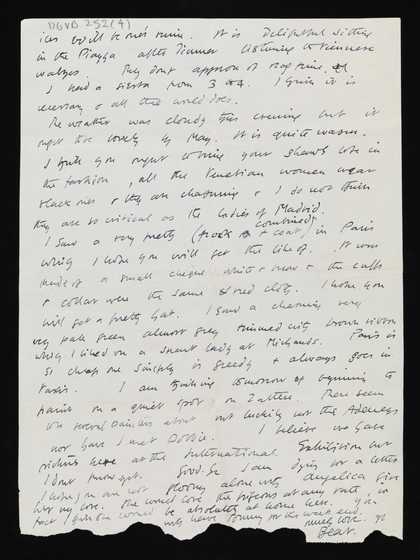 DGVB 252 (4)
ices will be one's ruin. It is Delightful sitting
in the Piazza after dinner listening to Viennese
waltzes. They dont approve of rag time.
I need a siesta from 3 I find it is
necessary & all the world does.
The weather was cloudy this evening but it
ought to be lovely by May. It is quite warm.
I think you ought to bring your shawl lots in
the fashion, all the Venetian women wear
black ones & they are charming & I do not think
they are so critical as the ladies of Madrid.
I saw a very pretty (frock & coat) combined in Paris
which I hope you will get the like of. It was
made of a small cheque white & & the cuffs
& collar were the same red cloth. I hope you
will get a pretty hat. I saw a charming very
very pale green almost grey trimmed with brown ribbon
which I liked on a smart lady at Michauds. Paris is
so cheap one simply is greedy & always goes in
taxis. I am thinking tomorrow of beginning to
paint on a quiet spot on Zattere. There seem
to be several painters about but luckily not the Addeneys
nor have I met Dottie. I believe we have
pictures here at the International Exhibition but
I dont know yet. Good-bye I am dying for a letter
I hope you are not gloomy alone with Angelica give
her my love. She would love the pigeons at any rate, in
fact I think would be absolutely at home here. You
will have Tommy for the week end.
much love. yr
Bear.